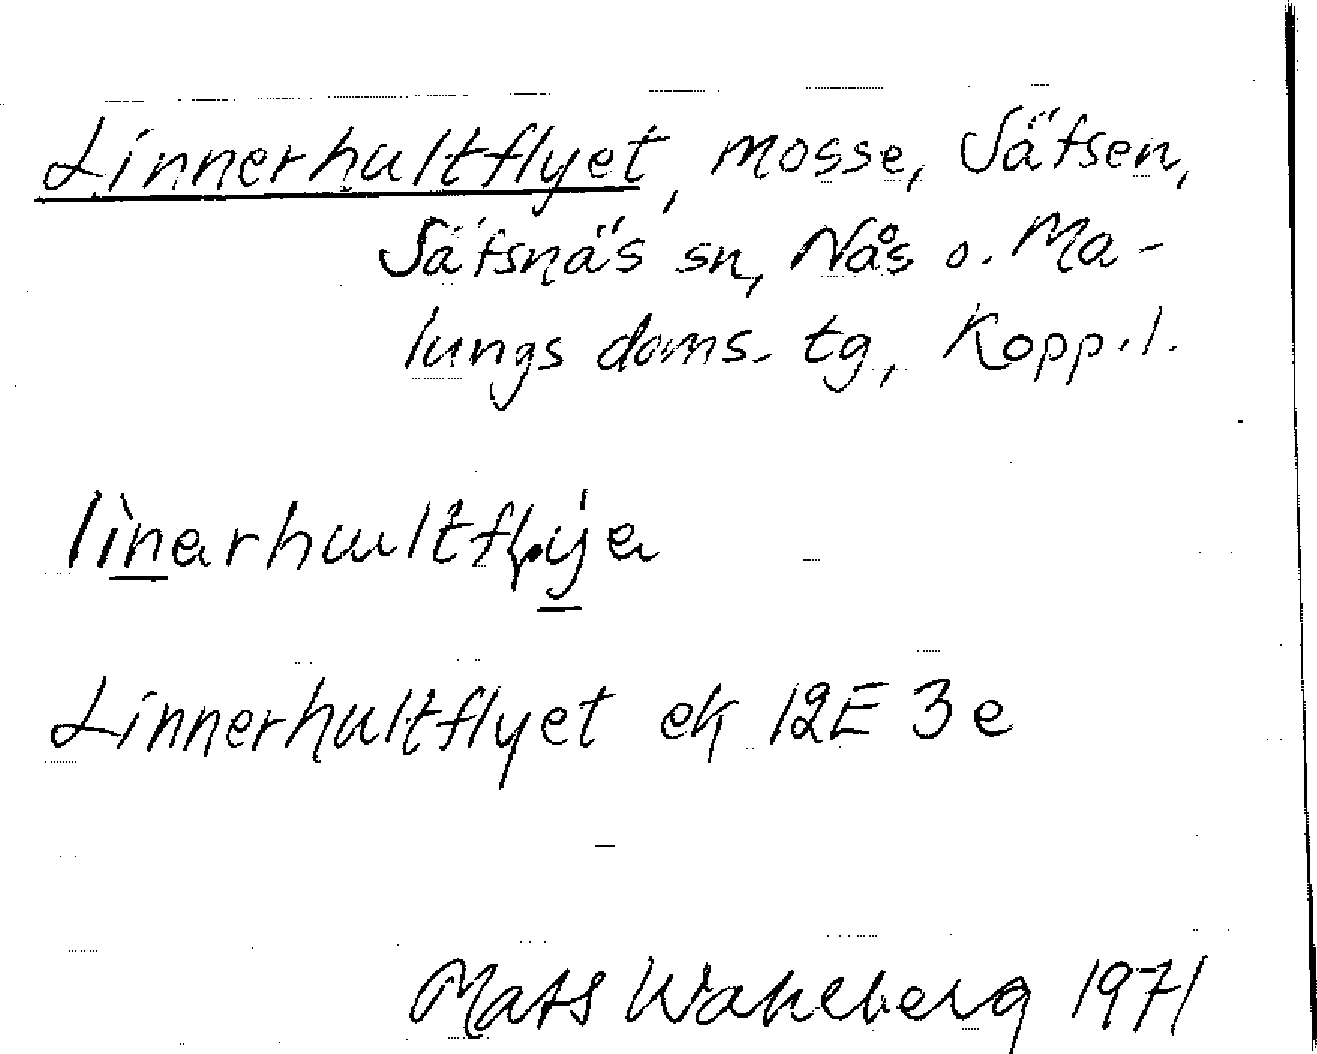 Linnerhultflyet, mosse, Sätsen,
Sätsnäs sn, Nås o. Ma-
lungs doms. tg, Kopp. l.
Linnerhultflyet ek 12E 3e
Mats Wahlberg 1971